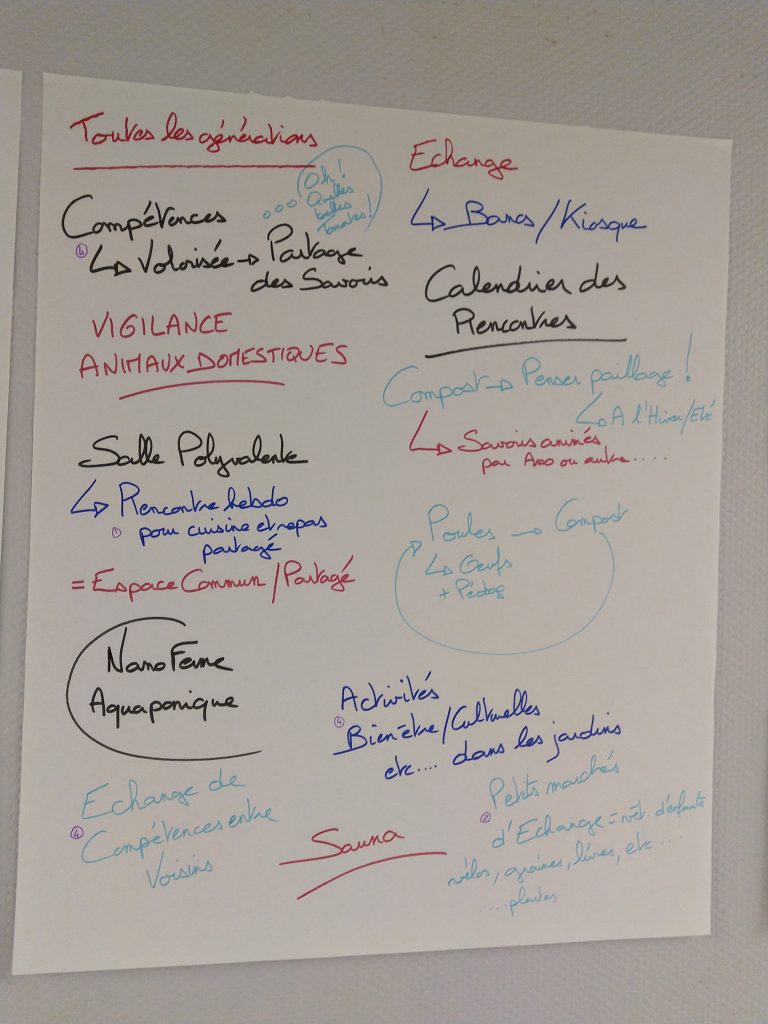 Toutes les générations
Oh!
Quelles
belles
Tomates!
Compétences
④ ↳ Valorisée → Partage
des Savoirs
VIGILANCE
ANIMAUX DOMESTIQUES
Salle Polyvalente
↳ Rencontre hebdo
① pour cuisine et repas
partagé
= Espace Commun / Partagé
Nano Ferme
Aquaponique
Echange de
④ Compétences entre
Voisins
Echange
↳ Bancs / Kiosque
Calendrier des
Rencontres
Compost → Penser paillage!
↳ A l'Hiver/Eté
↳ Savoirs animés
par Asso ou autre.....
Poules → Compost
↳ Oeufs
+ Pédag
Activités
④ Bien-être/Culturelles
etc.... dans les jardins
Petits marchés
② d'Echange = vêt. d'enfants
vélos, graines, livres, etc....
.... plantes
Sauna